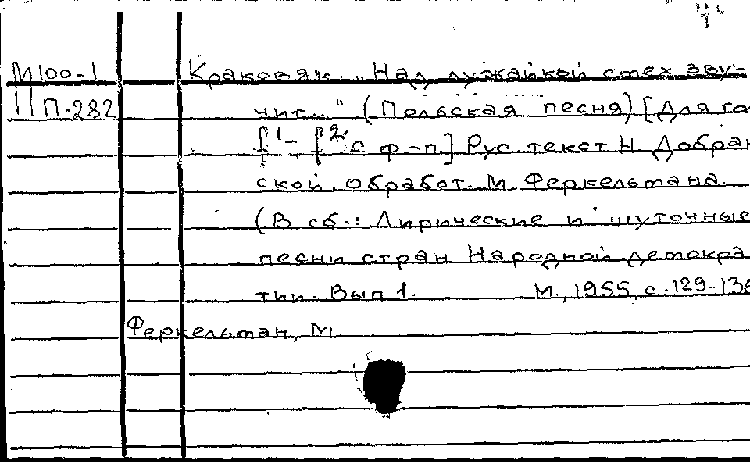 М100-1 Краковяк. „Над лужайкой смех зву-
П-282 чит..." (Польская песня) [Для го
f¹- f² с ф-п.] Рус. текст Н. Добран
ской, обработ. М. Феркельмана.
(В сб.: Лирические и шуточные
песни стран Народной демокра
тии. Вып 1. М., 1955, с. 129-136
Феркельман, М.